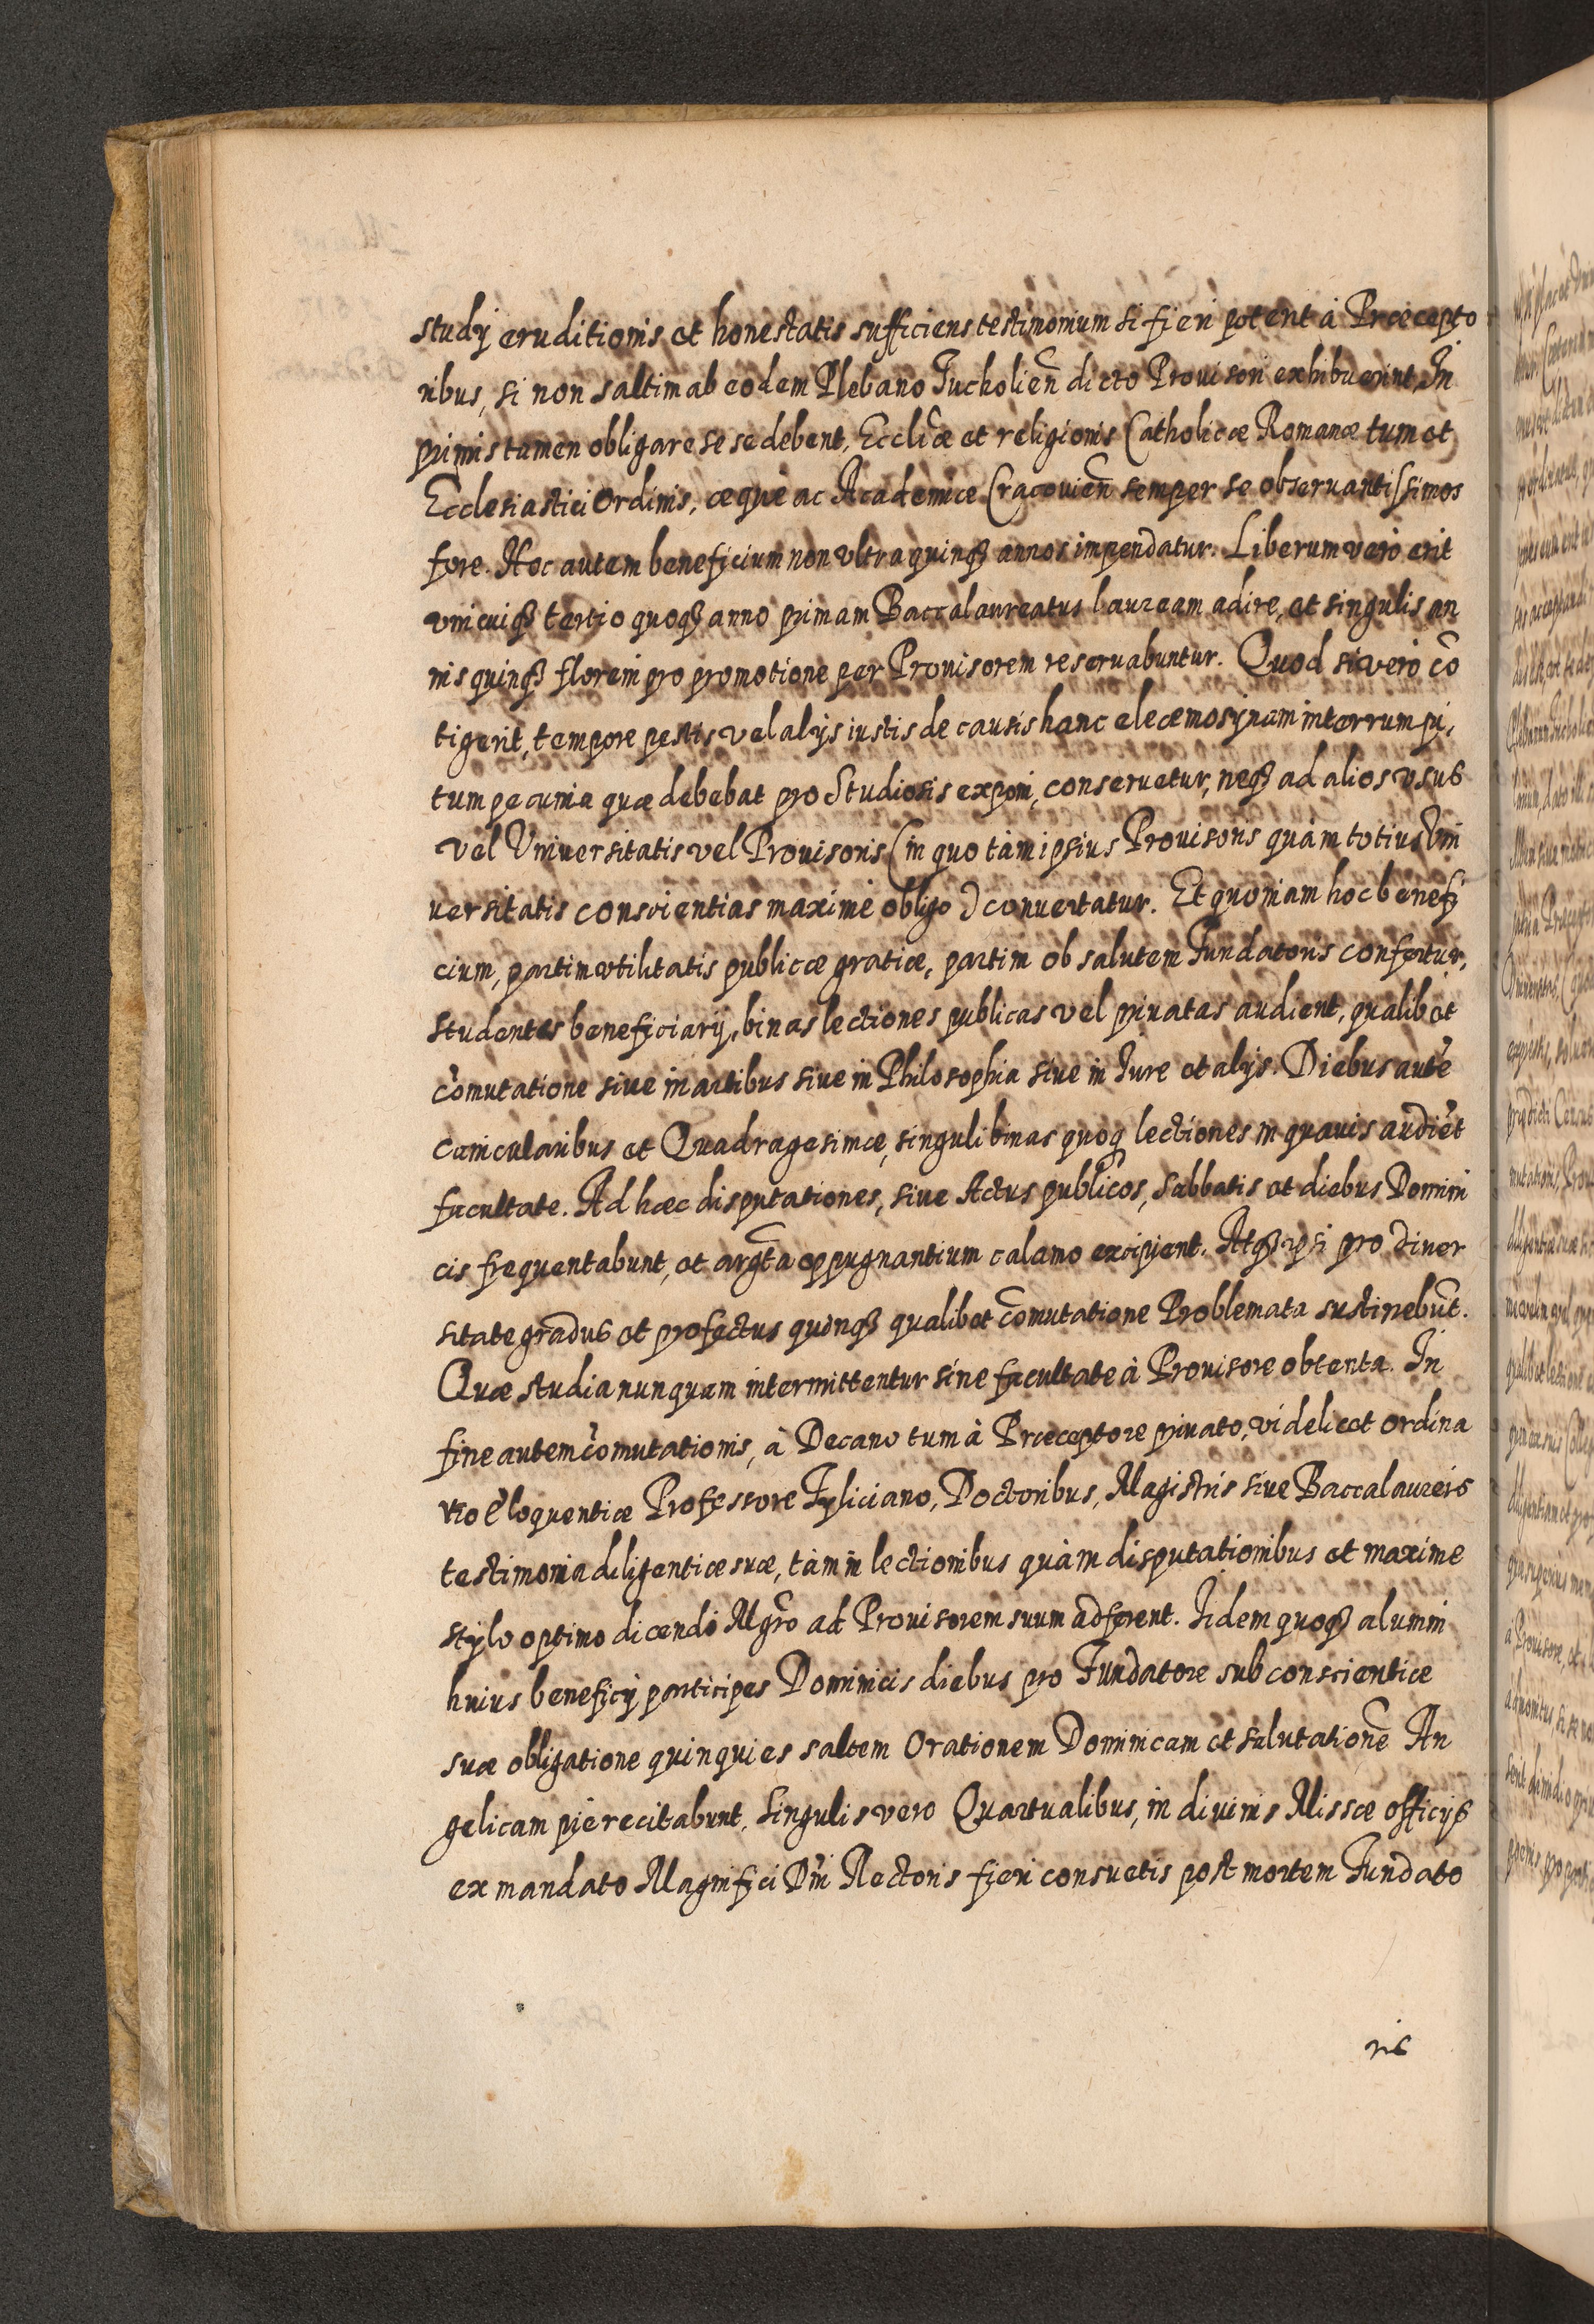 studÿ eruditionis et honestatis sufficiens testimonium si fieri poterit à Præcepto
ribus, si non saltim ab eodem Plebano Tucholień dicto Prouisori exhibuerint, In
primis tamen obligare se se debent, Eccliæ et religionis Catholicæ Romanæ tum et
Ecclesiastici Ordinis, æquè ac Academiæ Cracouień semper se obseruantissimos
fore. Hoc autem beneficium non vltra quinq3 annos impendatur. Liberum verò erit
vnicuiq3 tertio quoq3 anno primam Baccalaureatus lauream adire, et singulis an
nis quinq3 floreni pro promotione per Prouisorem reseruabuntur. Quod si verò cō
tigerit, tempore pestis vel alÿs iustis de causis hanc eleæmosÿnam interrumpi,
tum pecunia quæ debebat pro Studiosis exponi, conseruetur, neq3 ad alios vsus
vel Vniuersitatis vel Prouisoris (in quo tàm ipsius Prouisoris quàm totius Vni
uersitatis conscientias maximè obligo) conuertatur. Et quoniam hoc benefi
cium, partim vtilitatis publicæ gratiæ, partim ob salutem Fundatoris confertur,
studentes beneficiarÿ, binas lectiones publicas vel priuatas audient, qualibet
cōmutatione siue in artibus siue in Philosophia siue in Iure et alÿs. Diebus autē
canicularibus et Quadragesimæ, singuli binas quoq lectiones in quauis audiēt
facultate. Ad hæc disputationes, siue Actus publicos, Sabbatis et diebus Domini
cis frequentabunt, et argta oppugnantium calamo excipient. Atq3 ipsi pro diuer
sitate gradus et profectus quinq3 qualibet cōmutatione Problemata sustinebūt.
Quæ studia nunquam intermittentur sine facultate à Prouisore obtenta. In
fine autem cōmutationis, à Decano tum à Præceptore priuato, videlicet ordina
rio Eloquentiæ Professore Tÿliciano, Doctoribus, Magistris siue Baccalaureis
testimonia diligentiæ suæ, tàm in lectionibus quàm disputationibus et maxime
stÿlo optimo dicendi Mgrō ad Prouisorem suum adferent. Iidem quoq3 alumni
huius beneficÿ participes Dominicis diebus pro Fundatore sub conscientiæ
suæ obligatione quinquies saltem Orationem Dominicam et Salutationē An
gelicam piè recitabunt, Singulis vero Quartualibus, in diuinis Missæ officÿs
ex mandato Magnifici Dn̄i Rectoris fieri consuetis post mortem Fundato
ris